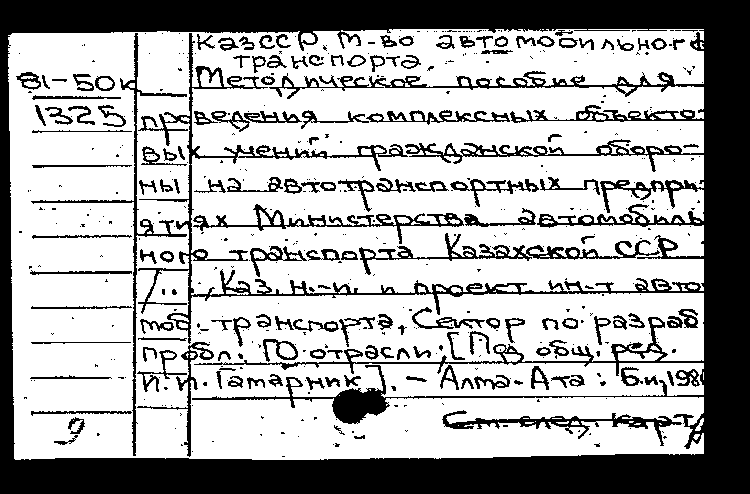 КазССР. М-во автомобильного
транспорта.
81-50к Методическое пособие для
1325 проведения комплексных объекто-
вых учений гражданской оборо-
ны на автотранспортных предпри-
ятиях Министерства автомобиль
ного транспорта Казахской ССР
/..., Каз. н.-и. и проект ин-т авто
моб. транспорта, Сектор по разраб
пробл. ГО отрасли; [Под общ. ред.
И.П. Гамарник]. – Алма-Ата: Б.и, 198
См. след. карт
9